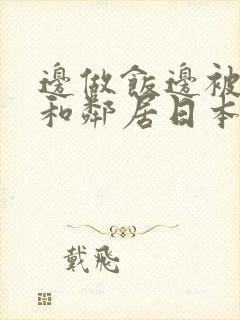 邊做飯邊被
和鄰居日本
戴飛